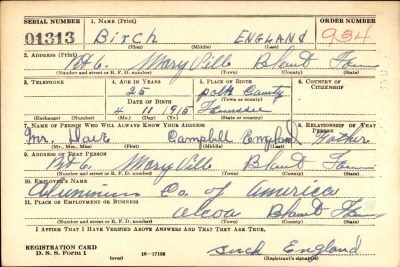 SERIAL NUMBER 1. NAME (Print) ORDER NUMBER
01313 Birch ENGLAND 934
(First) (Middle) (Last)
2. ADDRESS (Print)
Rt 6. Mary Ville Blount Tenn
(Number and street or R. F. D. number) (Town) (County) (State)
3. TELEPHONE 4. AGE IN YEARS 5. PLACE OF BIRTH 6. COUNTRY OF CITIZENSHIP
25 Polk County
DATE OF BIRTH (Town or county)
4 11 1915 Tennessee
(Exchange) (Number) (Mo.) (Day) (Yr.) (State or country)
7. NAME OF PERSON WHO WILL ALWAYS KNOW YOUR ADDRESS 8. RELATIONSHIP OF THAT PERSON
Mr. Campbell England Father
(Mr., Mrs., Miss) (First) (Middle) (Last)
9. ADDRESS OF THAT PERSON
Rt 6. Mary Ville Blount Tenn
(Number and street or R. F. D. number) (Town) (County) (State)
10. EMPLOYER'S NAME
Aluminum Co. of America
11. PLACE OF EMPLOYMENT OR BUSINESS
Alcoa Blount Tenn
(Number and street or R. F. D. number) (Town) (County) (State)
I AFFIRM THAT I HAVE VERIFIED ABOVE ANSWERS AND THAT THEY ARE TRUE.
REGISTRATION CARD
D. S. S. Form 1 16-17105 Birch England
(over) (Registrant's signature)